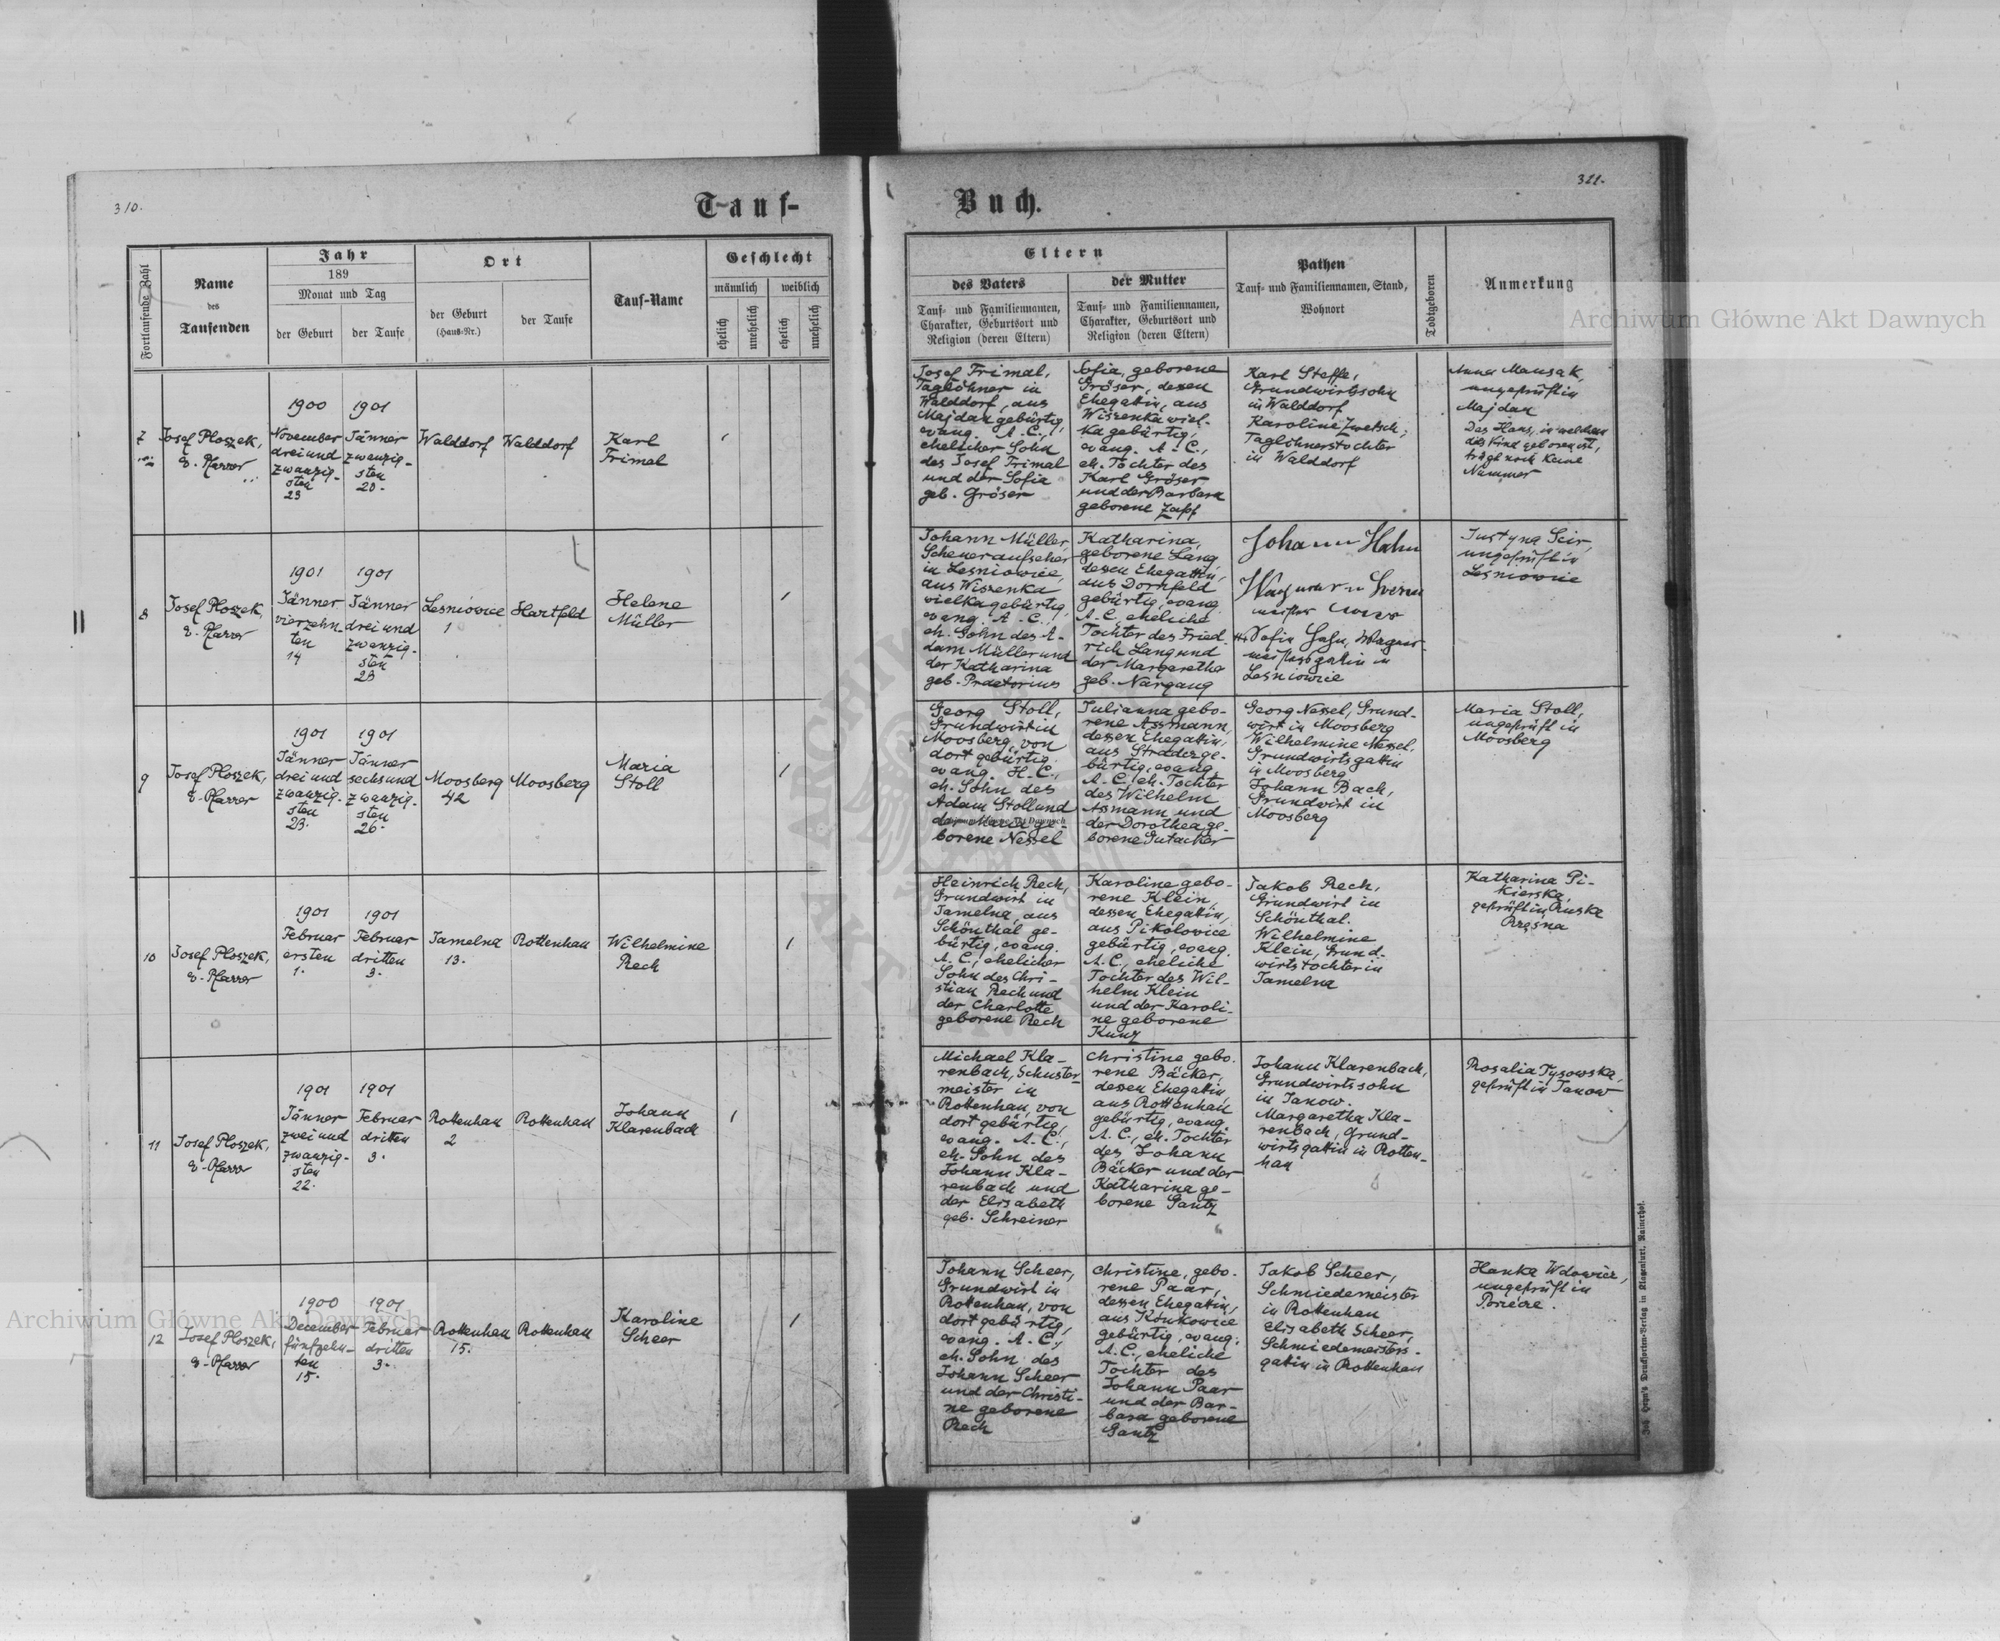 310.
Tauf-
Fortlaufende Zahl
Name
des
Taufenden
Jahr
189
Monat und Tag
der Geburt
der Taufe
Ort
der Geburt
(Haus-Nr.)
der Taufe
Tauf-Name
Geschlecht
männlich
weiblich
ehelich
unehelich
ehelich
unehelich
7
Josef Ploszek,
e. Pfarrer
1900
November
dreiund
zwanzig-
sten
23
1901
Jänner
zwanzig-
sten
20.
Walddorf
Walddorf
Karl
Frimal
8
Josef Ploszek,
e. Pfarrer
1901
Jänner
vierzehn-
ten
14
1901
Jänner
dreiund
zwanzig-
sten
23
Lesniowice
1
Hartfeld
Helene
Müller
9
Josef Ploszek,
e. Pfarrer
1901
Jänner
dreiund
zwanzig-
sten
23.
1901
Jänner
sechsund
zwanzig-
sten
26.
Moosberg
42
Moosberg
Maria
Stoll
10
Josef Ploszek,
e. Pfarrer
1901
Februar
ersten
1.
1901
Februar
dritten
3.
Tamelna
13.
Rottenhan
Wilhelmine
Rech
11
Josef Ploszek,
e. Pfarrer
1901
Jänner
zweiund
zwanzig-
sten
22.
1901
Februar
dritten
3.
Rottenhan
2
Rottenhan
Johann
Klarenbach
12
Josef Ploszek,
e. Pfarrer
1900
December
fünfzehn-
ten
15.
1901
Februar
dritten
3.
Rottenhan
15.
Rottenhan
Karoline
Scheer
Buch.
311.
Eltern
des Vaters
Tauf- und Familiennamen,
Charakter, Geburtsort und
Religion (deren Eltern)
der Mutter
Tauf- und Familiennamen,
Charakter, Geburtsort und
Religion (deren Eltern)
Pathen
Tauf- und Familiennamen, Stand,
Wohnort
Todtgeboren
Anmerkung
Josef Frimal,
Taglöhner in
Walddorf, aus
Majdan gebürtig,
evang. A. C.,
ehelicher Sohn
des Josef Frimal
und der Sofia
geb. Gröser
Sofia, geborene
Gröser, dessen
Ehegattin, aus
Wiszenka wiel-
ka gebürtig,
evang. A. C.,
eh. Tochter des
Karl Gröser
und der Barbara
geborene Zapf
Karl Steffe,
Grundwirtssohn
in Walddorf
Karoline Zwetsch,
Taglöhnerstochter
in Walddorf
Anna Mausak,
ungeprüft in
Majdan
Das Haus, in welchem
das Kind geboren ist,
trägt noch keine
Nummer
Johann Müller,
Scheueraufseher
in Lesniowice,
aus Wiszenka
wielka gebürtig,
evang. A. C.,
eh. Sohn des A-
dam Müller und
der Katharina
geb. Praetorius
Katharina,
geborene Lang,
dessen Ehegattin,
aus Dornfeld
gebürtig, evang.
A. C., eheliche
Tochter des Fried
rich Lang und
der Margaretha
geb. Nargang
Johann Hahn
Sofia Hahn, Wagner-
meistersgattin in
Lesniowice
Justyna Scir,
ungeprüft in
Lesniowice
Georg Stoll,
Grundwirt in
Moosberg, von
dort gebürtig,
evang. H. C.,
eh. Sohn des
Adam Stoll und
der Maria ge-
borene Nessel
Julianna gebo-
rene Assmann,
dessen Ehegattin,
aus Stradcz ge-
bürtig, evang.
A. C., eh. Tochter
des Wilhelm
Asmann und
der Dorothea ge-
borene Gutacker
Georg Nessel, Grund-
wirt in Moosberg
Wilhelmine Nessel,
Grundwirtsgattin
in Moosberg
Johann Bach,
Grundwirt in
Moosberg
Maria Stoll,
ungeprüft in
Moosberg
Heinrich Rech,
Grundwirt in
Tamelna, aus
Schönthal ge-
bürtig, evang.
A. C., ehelicher
Sohn des Chri-
stian Rech und
der Charlotte
geborene Rech
Karoline gebo-
rene Klein,
dessen Ehegattin,
aus Pikolovice
gebürtig, evang.
A. C., eheliche
Tochter des Wil-
helm Klein
und der Karoli-
ne geborene
Kunz
Jakob Rech,
Grundwirt in
Schönthal.
Wilhelmine
Klein, Grund-
wirtstochter in
Tamelna
Katharina Pi-
kierska,
geprüft in Ruska
Michael Kla-
renbach, Schuster-
meister in
Rottenhan, von
dort gebürtig,
evang. A. C.,
eh. Sohn des
Johann Kla-
renbach und
der Elisabeth
geb. Schreiner
Christine gebo-
rene Bäcker,
dessen Ehegattin,
aus Rottenhan
gebürtig, evang.
A. C., eh. Tochter
des Johann
Bäcker und der
Katharina ge-
borene Gantz
Johann Klarenbach,
Grundwirtssohn
in Janow.
Margaretha Kla-
renbach, Grund-
wirtsgattin in Rotten-
han
Rosalia Tysowska,
geprüft in Janow
Johann Scheer,
Grundwirt in
Rottenhan, von
dort gebürtig,
evang. A. C.,
eh. Sohn des
Johann Scheer
und der Christi-
ne geborene
Rech
Christine, gebo-
rene Paar,
dessen Ehegattin,
aus
gebürtig, evang.
A. C., eheliche
Tochter des
Johann Paar
und der Bar-
bara geborene
Gantz
Jakob Scheer,
Schmiedemeister
in Rottenhan
Elisabeth Scheer,
Schmiedemeisters-
gattin in Rottenhan
Hanka Wdowicz,
ungeprüft in
Archiwum Główne Akt Dawnych
Archiwum Główne Akt Dawnych